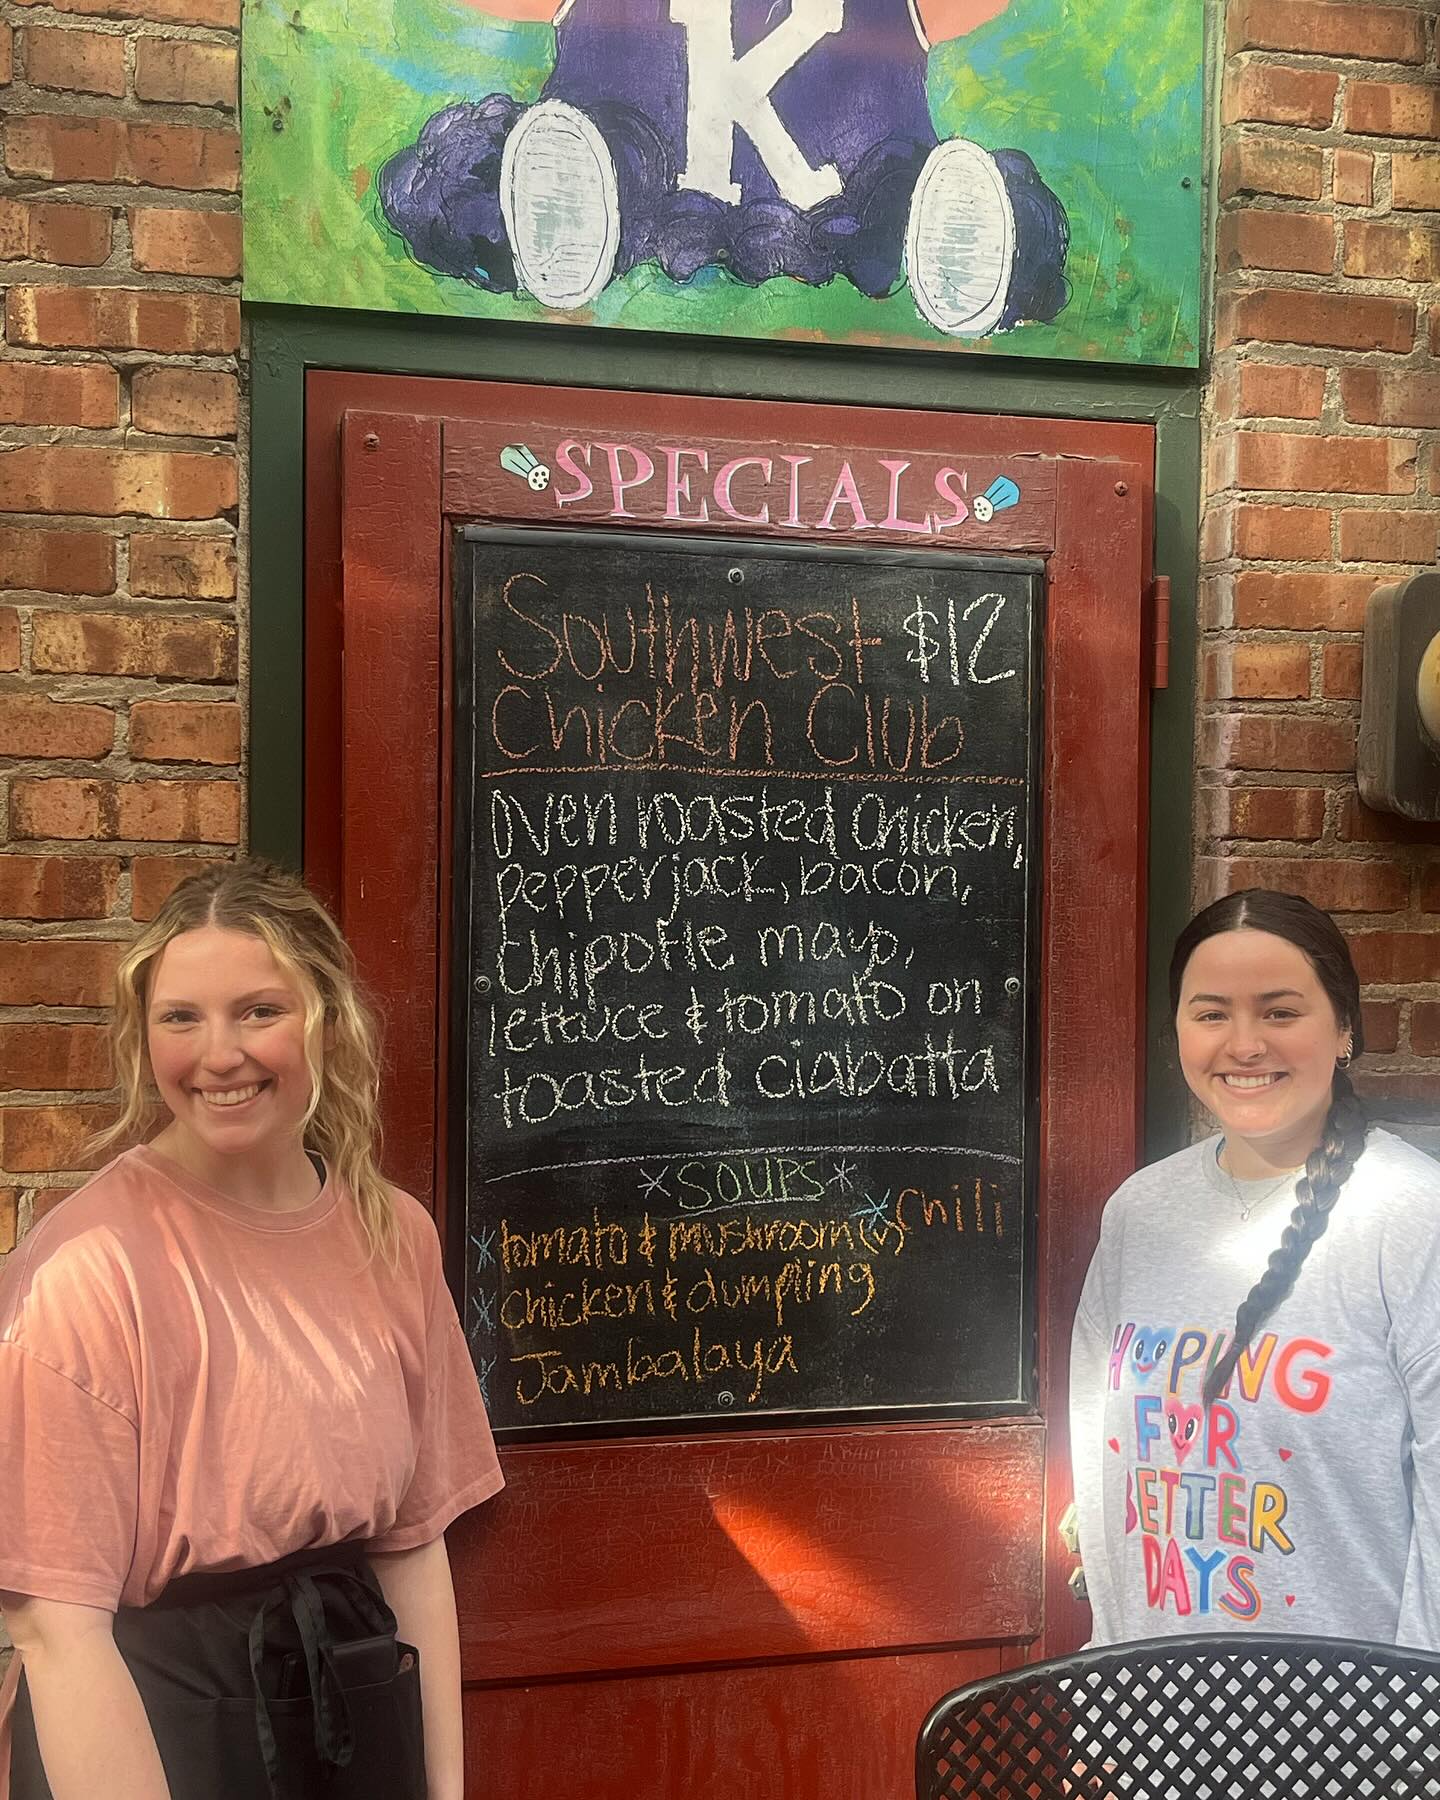 K
SPECIALS
Southwest $12
Chicken Club
Oven roasted chicken,
pepperjack, bacon,
Chipotle mayo,
lettuce & tomato on
toasted ciabatta
*SOUPS*
*tomato & mushroom (v) *Chili
*Chicken & dumpling
*Jambalaya
HOOPING
FOR
BETTER
DAYS